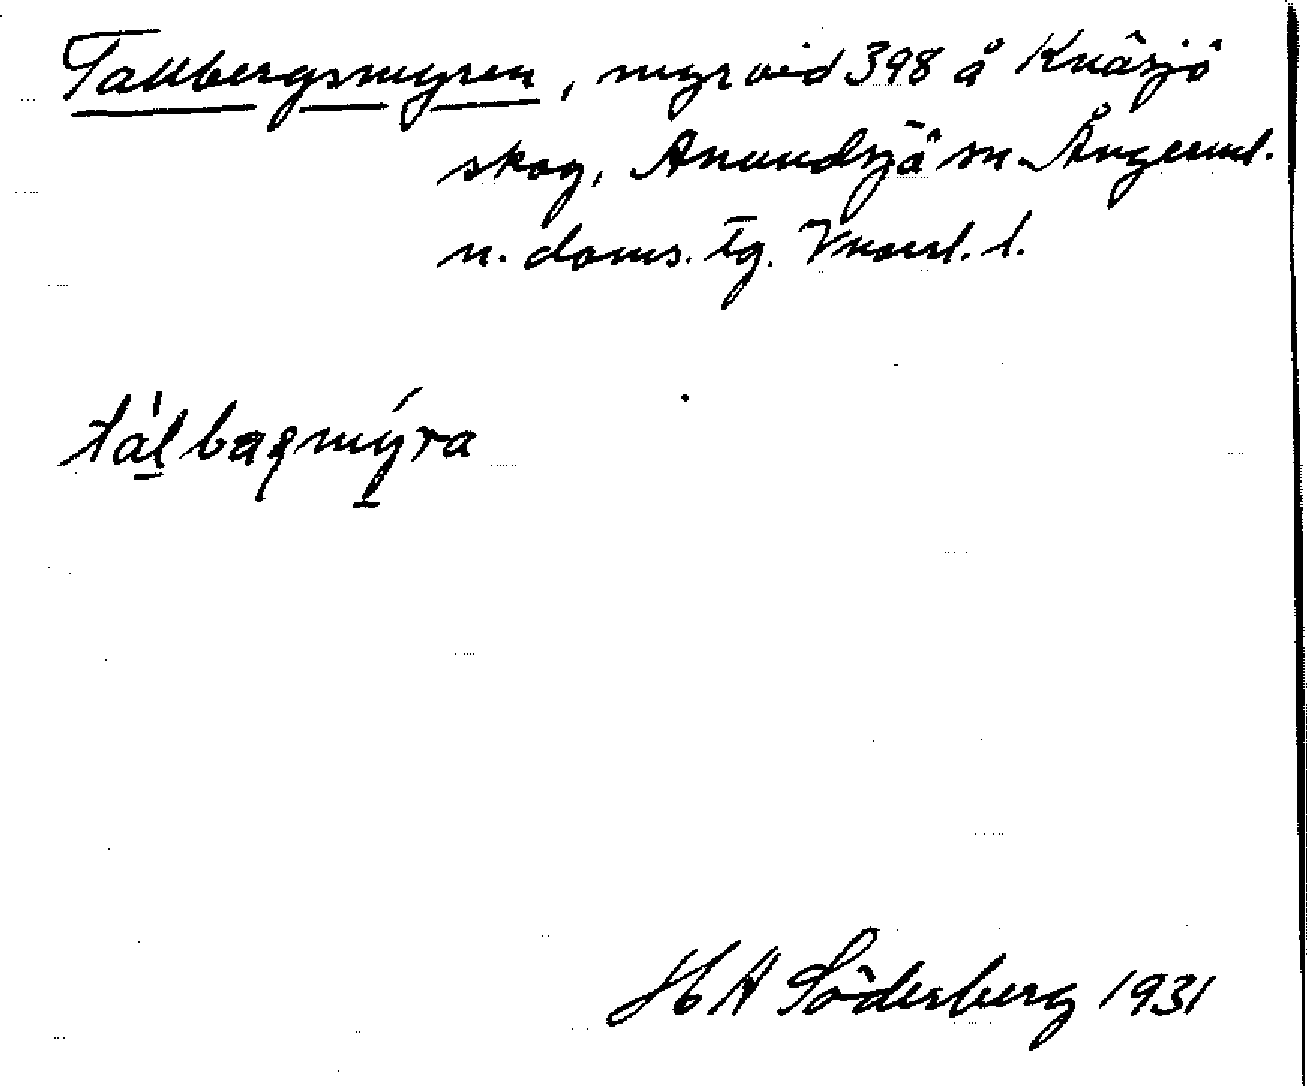 Tallbergsmyren, myr vid 398 å Knäsjö
skog, Anundsjö sn. Ångerml.
n. doms. tg. Vnorrl. l.
tál̲baqmýra
H A Söderberg 1931